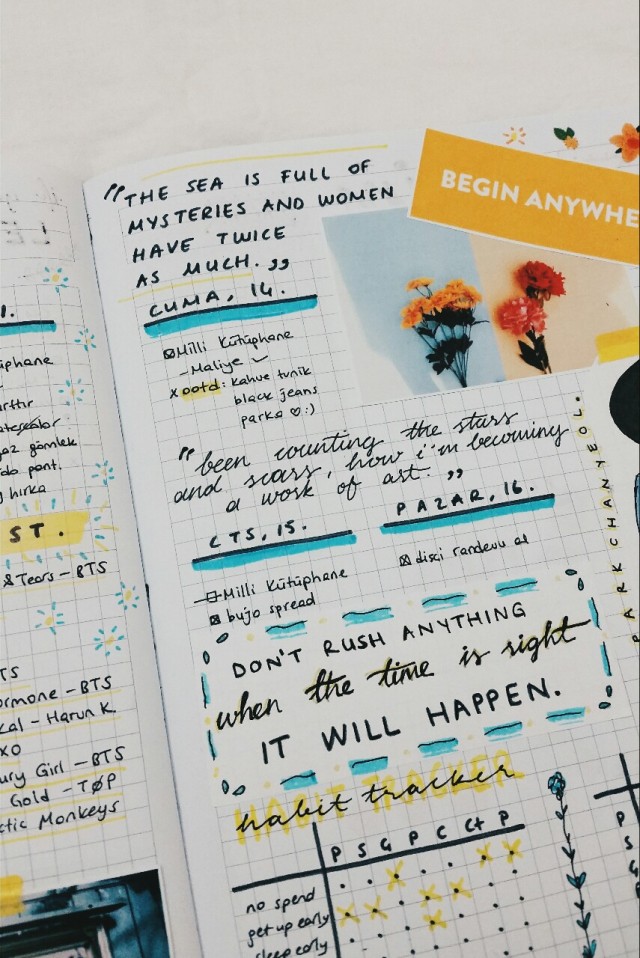 1.
ST.
& Tears – BTS
TS
ormone – BTS
kal – Harun K.
XO
ury Girl – BTS
Gold – TØP
ctic Monkeys
"THE SEA IS FULL OF
MYSTERIES AND WOMEN
HAVE TWICE
AS MUCH."
CUMA, 14.
Milli Kütüphane
– Maliye
x ootd: kahve tunik
black jeans
parka ♡ :)
BEGIN ANYWHE
"been counting the stars
and scars, how i'm becoming
a work of art."
CTS, 15.
Milli Kütüphane
bujo spread
PAZAR, 16.
disçi randevu al
PARK CHANYEOL.
DON'T RUSH ANYTHING
when the time is right
IT WILL HAPPEN.
HABIT TRACKER
habit tracker
P S Ç P C Ct P
no spend
get up early
sleep early
P
S